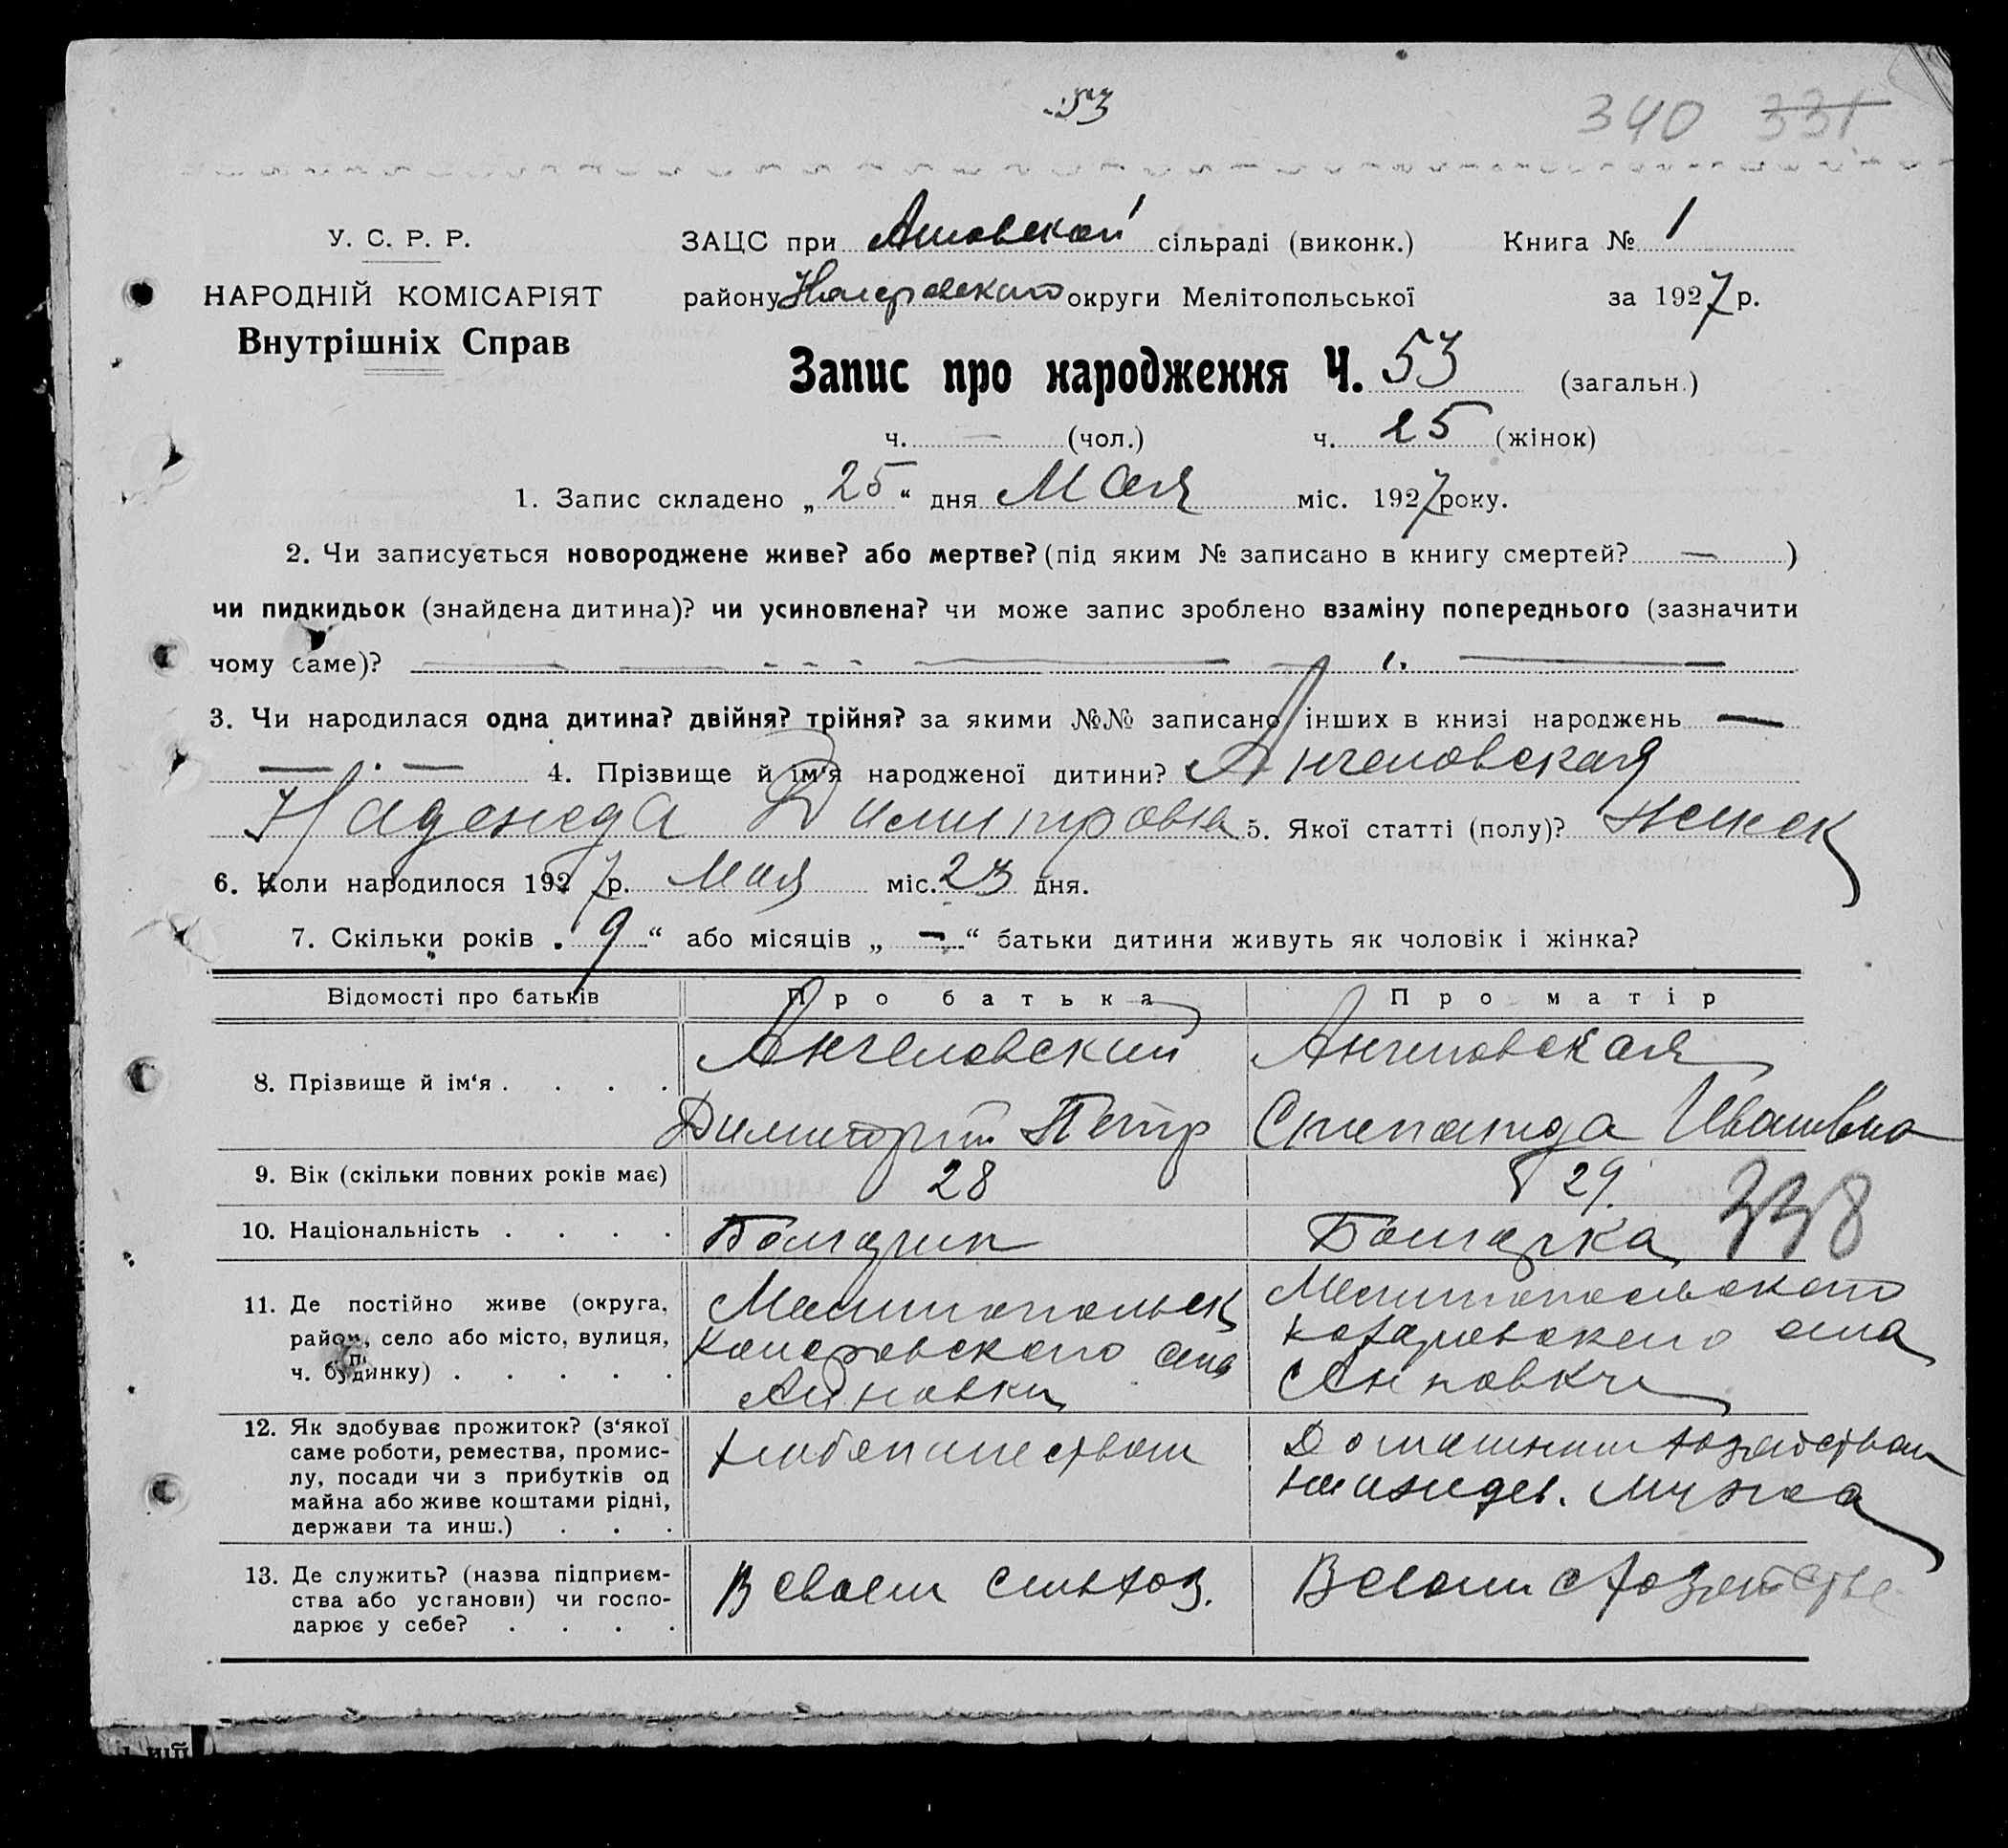 53
340 331
У. С. Р. Р.
НАРОДНІЙ КОМІСАРІЯТ
Внутрішніх Справ
ЗАЦС при сільраді (виконк.) Книга № 1
району округи Мелітопольської за 1927 р.
Запис про народження Ч. 53 (загальн.)
ч. — (чол.) ч. 25 (жінок)
1. Запис складено „25“ дня Мая міс. 1927 року.
2. Чи записується новороджене живе? або мертве? (під яким № записано в книгу смертей? — )
чи пидкидьок (знайдена дитина)? чи усиновлена? чи може запис зроблено взаміну попереднього (зазначити
чому саме)?
3. Чи народилася одна дитина? двійня? трійня? за якими №№ записано інших в книзі народжень —
— . — 4. Прізвище й ім‘я народженої дитини? Ангеловская
Надежда Димитровна 5. Якої статті (полу)? женск
6. Коли народилося 1927 р. Мая міс. 23 дня.
7. Скільки років „ 9 “ або місяців „ — “ батьки дитини живуть як чоловік і жінка?
Відомості про батьків Про батька Про матір
8. Прізвище й ім‘я . . . . Ангеловский Ангеловская
Димитрий Петр Степанида Ивановна
9. Вік (скільки повних років має) 28 29.
10. Національність . . . . Болгарин Болгарка 338
11. Де постійно живе (округа, район, село або місто, вулиця, ч. будинку) . . . . . Мелитопольск Мелитопольского
села
Анновки
12. Як здобуває прожиток? (з‘якої саме роботи, ремества, промислу, посади чи з прибутків од майна або живе коштами рідні, держави та инш.) . . . хлебопашеством Домашним хозяйством
на иждев. мужа
13. Де служить? (назва підприємства або установи) чи господарює у себе? . . . . В своем сельхоз. В своем хозяйстве